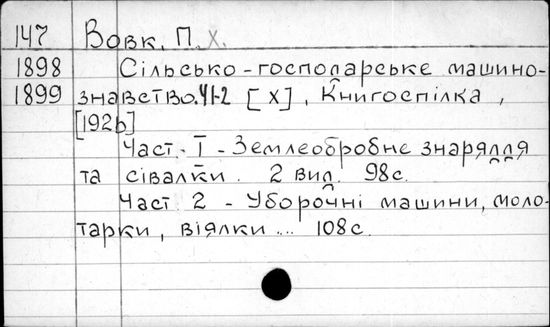 147 Вовк, П. Х.
1898 Сільсько-господарське машино-
1899 знавство. Ч1-2 [Х], Книгоспілка,
[1926]
Част. І - Землеобробне знаряддя
та сівалки. 2 вид. 98с.
Част. 2 - Уборочні машини, моло-
тарки, віялки... 108с.